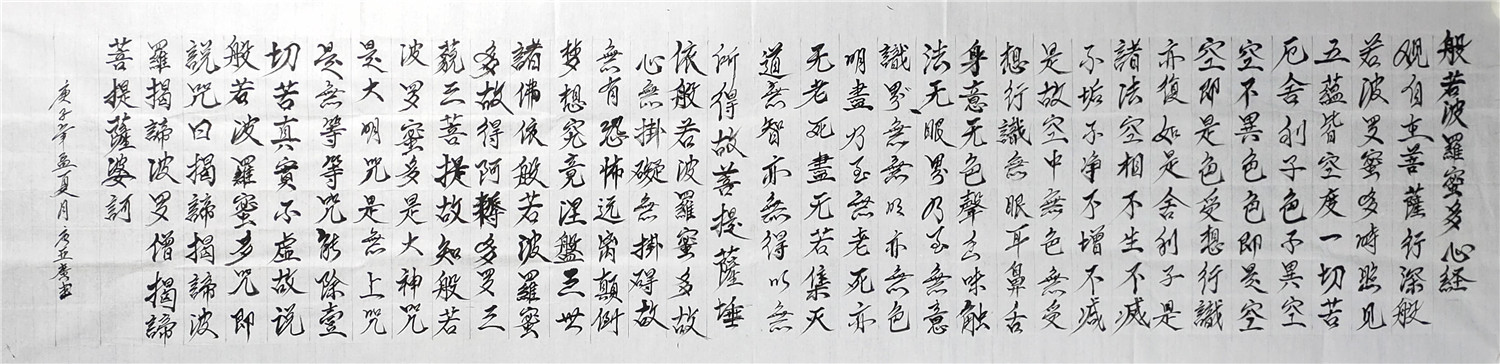 般若波羅蜜多心経
观自在菩薩行深般
若波罗蜜多時照见
五蕴皆空度一切苦
厄舍利子色不異空
空不異色色即是空
空即是色受想行識
亦復如是舍利子是
諸法空相不生不滅
不垢不净不增不减
是故空中無色無受
想行識無眼耳鼻舌
身意无色聲香味触
法无眼界乃至無意
識界無無明亦無色
明盡乃至無老死亦
无老死盡无苦集灭
道無智亦無得以無
所得故菩提薩埵
依般若波羅蜜多故
心無掛礙無掛碍故
無有恐怖远离顛倒
梦想究竟涅盤三世
諸佛依般若波羅蜜
多故得阿耨多罗三
藐三菩提故知般若
波罗蜜多是大神咒
是大明咒是無上咒
是無等等咒能除壹
切苦真實不虚故说
般若波羅蜜多咒即
説咒曰揭諦揭諦波
羅揭諦波罗僧揭諦
菩提薩婆訶
庚子年孟夏月